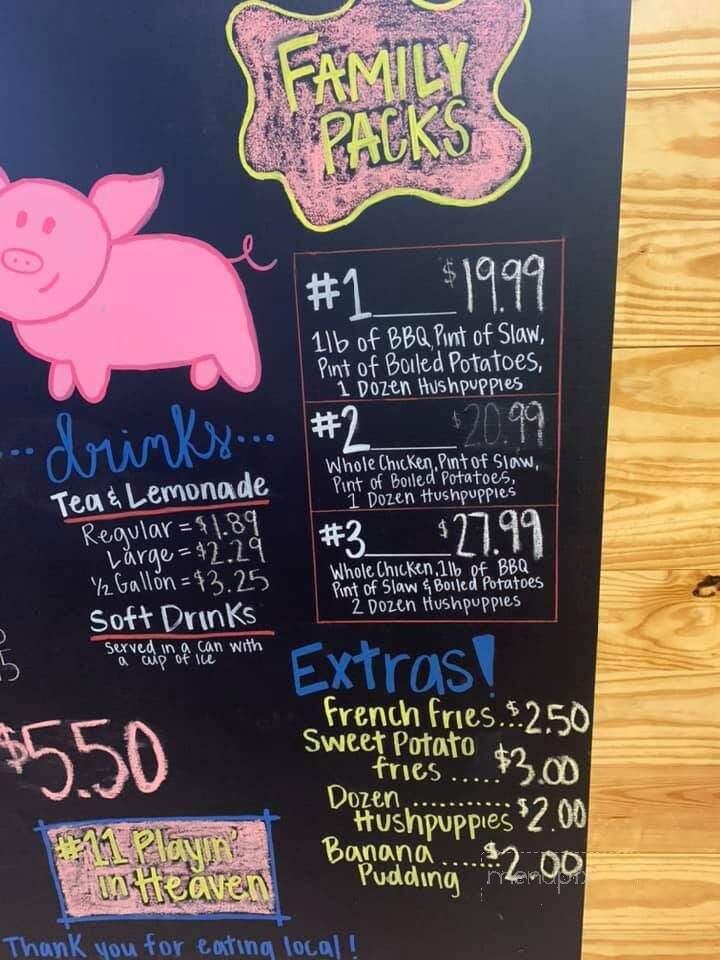 FAMILY
PACKS
#1____ $19.99
1lb of BBQ, Pint of Slaw,
Pint of Boiled Potatoes,
1 Dozen Hushpuppies
#2____ $20.99
Whole Chicken, Pint of Slaw,
Pint of Boiled Potatoes,
1 Dozen Hushpuppies
#3____ $27.99
Whole Chicken, 1lb of BBQ
Pint of Slaw & Boiled Potatoes
2 Dozen Hushpuppies
...drinks...
Tea & Lemonade
Regular = $1.89
Large = $2.29
1/2 Gallon = $3.25
Soft Drinks
Served in a can with
a cup of ice
$5.50
Extras!
French Fries...$2.50
Sweet Potato
fries.....$3.00
Dozen............
Hushpuppies $2.00
Banana.....$2.00
Pudding
#11 Playin'
in Heaven
Thank you for eating local!